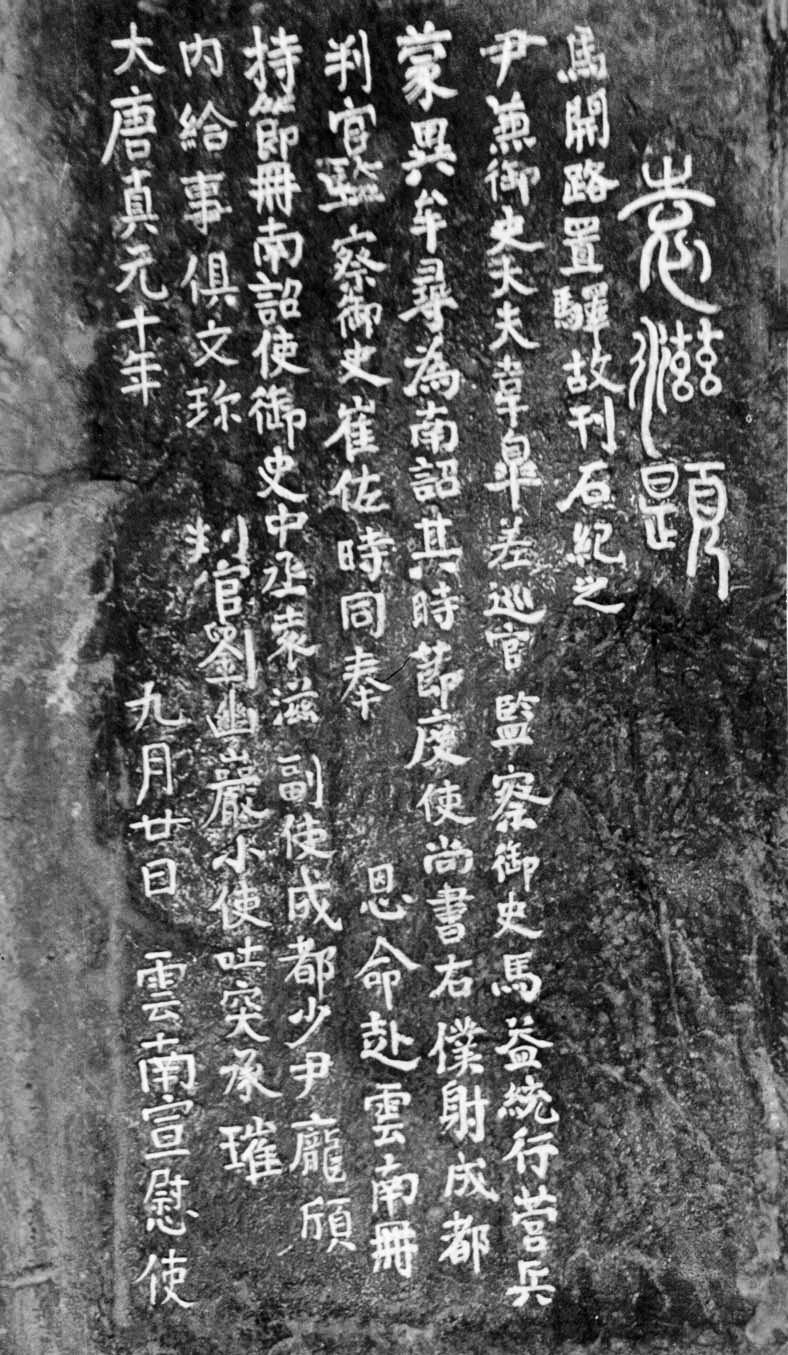 大唐真元十年 九月廿日 雲南宣慰使
內給事俱文珎 判官劉幽巖小使吐突承璀
持節冊南詔使御史中丞袁滋 副使成都少尹龐頎
判官監察御史崔佐時同奉 恩命赴雲南冊
蒙異牟尋為南詔其時節度使尚書右僕射成都
尹兼御史大夫韋皐差巡官監察御史馬益統行營兵
馬開路置驛故刊石紀之
袁滋題